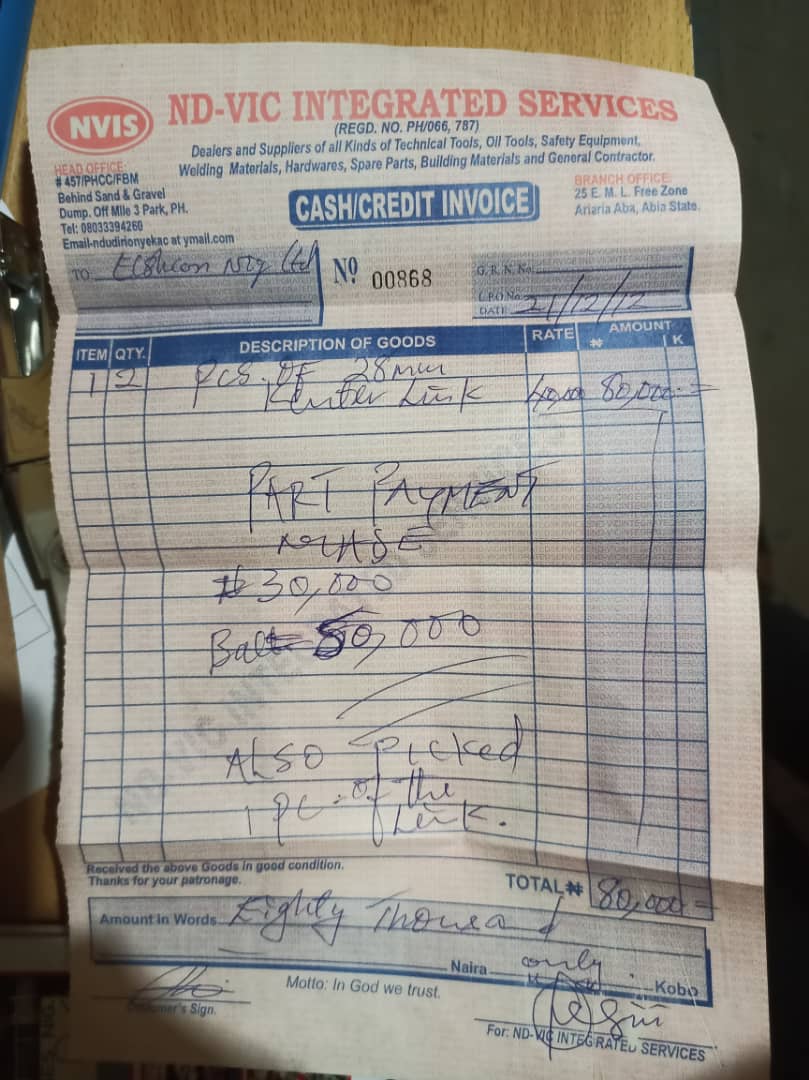 NVIS
ND-VIC INTEGRATED SERVICES
(REGD. NO. PH/066, 787)
Dealers and Suppliers of all Kinds of Technical Tools, Oil Tools, Safety Equipment,
Welding Materials, Hardwares, Spare Parts, Building Materials and General Contractor.
HEAD OFFICE:
# 457/PHCC/FBM
Behind Sand & Gravel
Dump. Off Mile 3 Park, PH.
Tel: 08033394260
Email-ndudirionyekac at ymail.com
CASH/CREDIT INVOICE
BRANCH OFFICE:
25 E. M. L. Free Zone
Ariaria Aba, Abia State.
TO Nig Ltd
No 00868
G. R. N. No.
L.P.O No.
DATE 21/12/12
ITEM QTY. DESCRIPTION OF GOODS RATE AMOUNT
₦ K
1 2 Pcs. OF 28mm
Kenter Link 40,000 80,000=
PART PAYMENT
MADE
₦30,000
Bal= 50,000
ALSO Picked
1 pc. of the
Link.
Received the above Goods in good condition.
Thanks for your patronage.
TOTAL ₦ 80,000=
Amount in Words Eighty Thousand
Naira only Kobo
Customer's Sign.
Motto: In God we trust.
For: ND-VIC INTEGRATED SERVICES